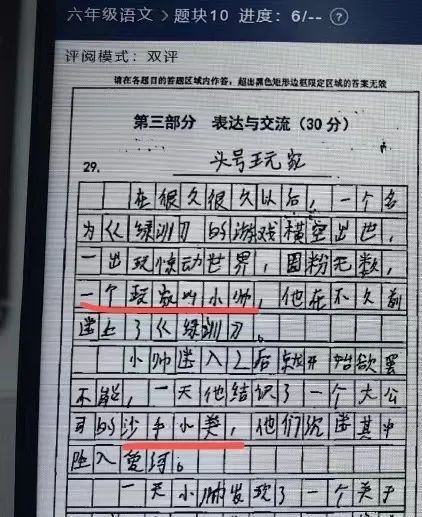 六年级语文 > 题块10 进度：6/-- ?
评阅模式：双评
请在各题目的答题区域内作答，超出黑色矩形边框限定区域的答案无效
第三部分 表达与交流（30分）
29.
头号玩家
在很久很久以后，一个名
为《绿洲》的游戏横空出世，
一出现惊动世界，圈粉无数，
一个玩家叫小帅，他在不久前
迷上了《绿洲》。
小帅迷入之后就开始欲罢
不能，一天他结识了一个大公
司的沙手小美，他们沉迷其中
坠入爱河。
一天小帅发现了一个关于